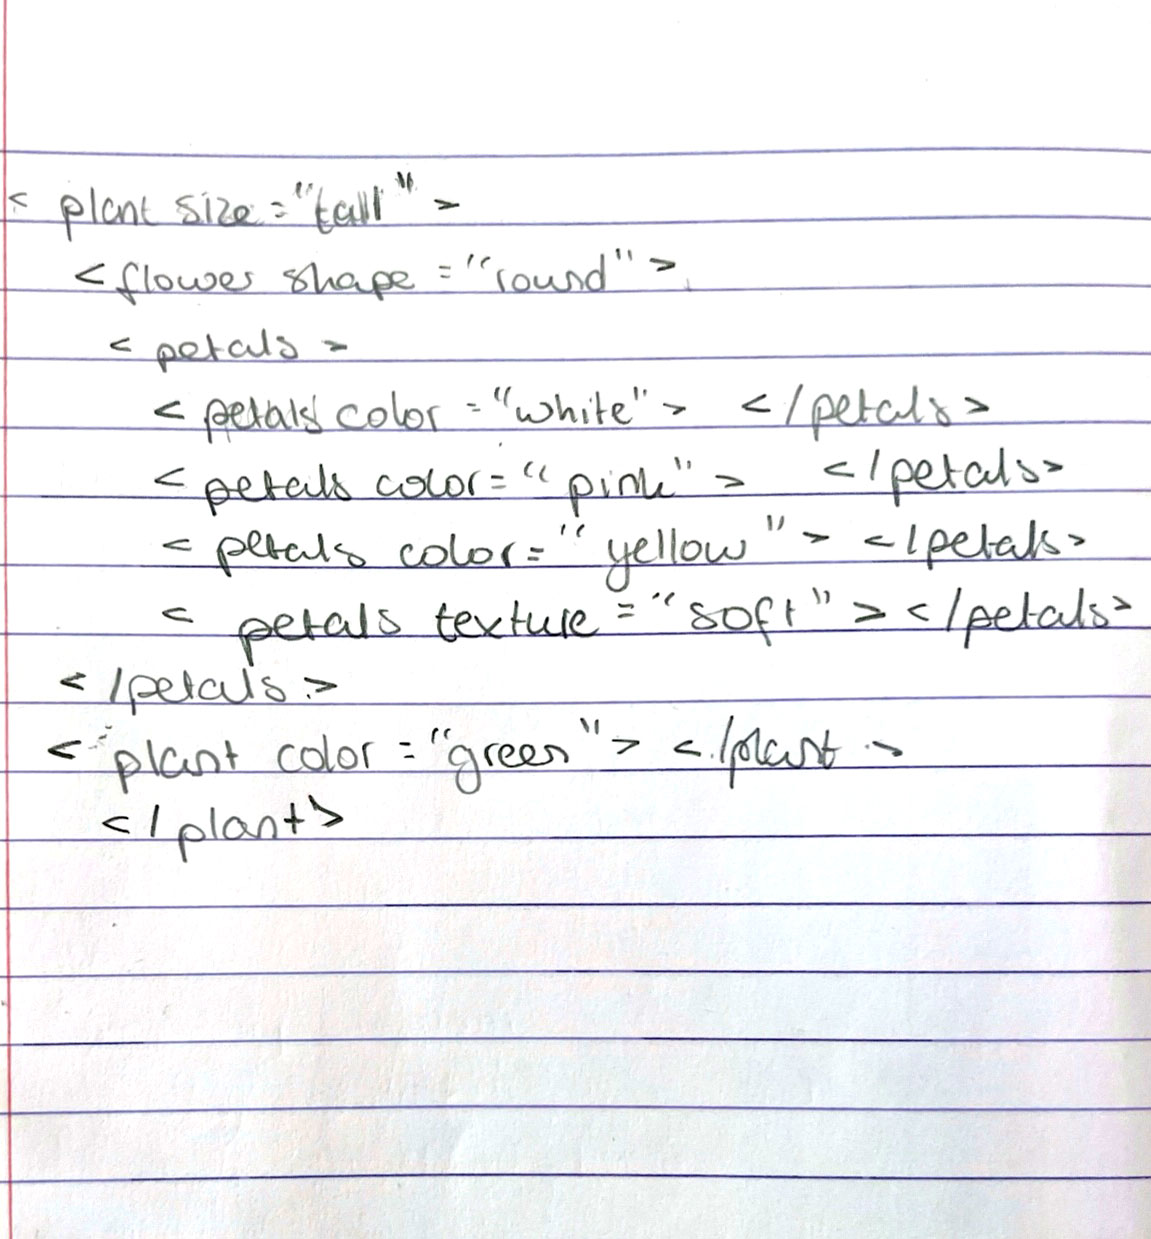 < plant size="tall" >
<flower shape ="round" >
< petals >
< petals color ="white" > </petals>
< petals color=" pink" > </petals>
< petals color=" yellow " > </petals>
< petals texture = "soft" > </petals>
</petals >
< plant color ="green " > </plant >
</plant>